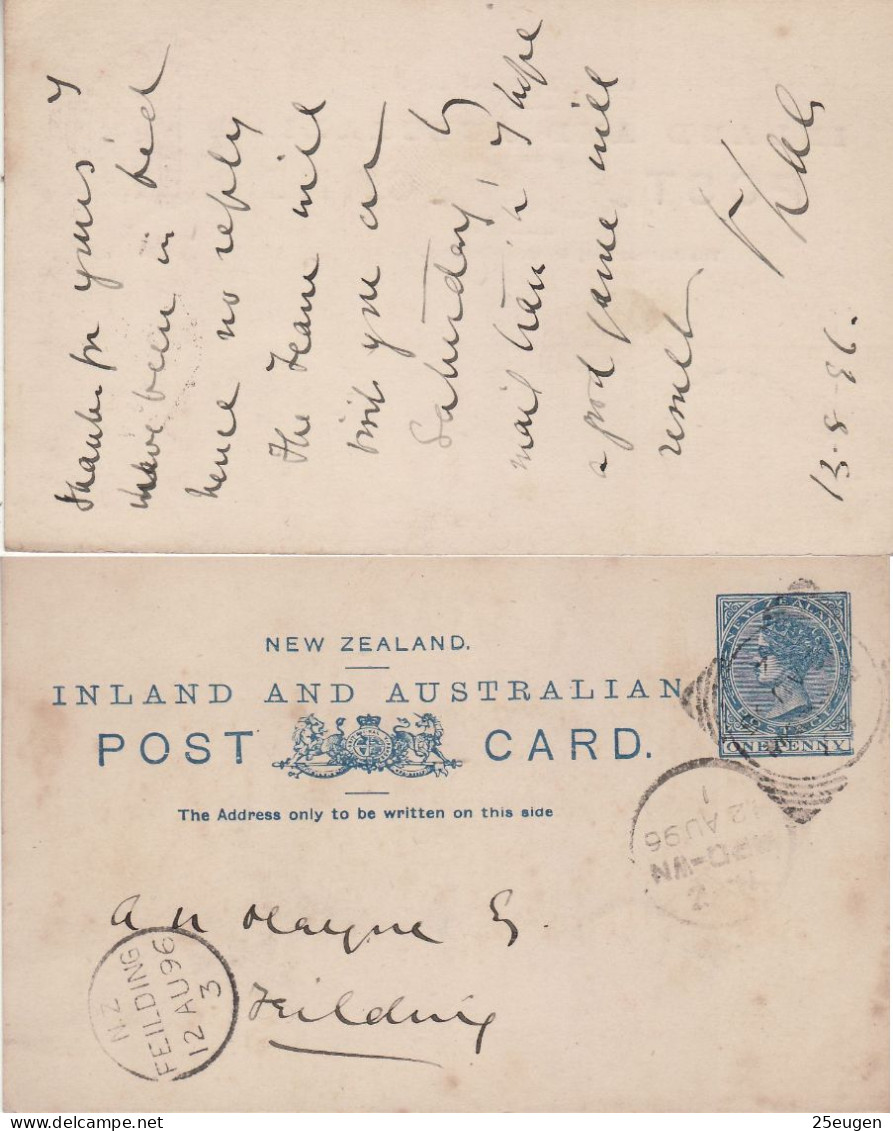 Thanks for yours I
have been in bed
hence no reply
The team will
visit you on
Saturday by
mail train & I hope
a good game will
result
13.8.96.
NEW ZEALAND.
INLAND AND AUSTRALIAN
POST CARD.
The Address only to be written on this side
NEW ZEALAND
POSTAGE
ONE PENNY
12 AU 96
A N Hayne Esq.
Feilding
N.Z
FEILDING
12 AU 96
3
25eugen